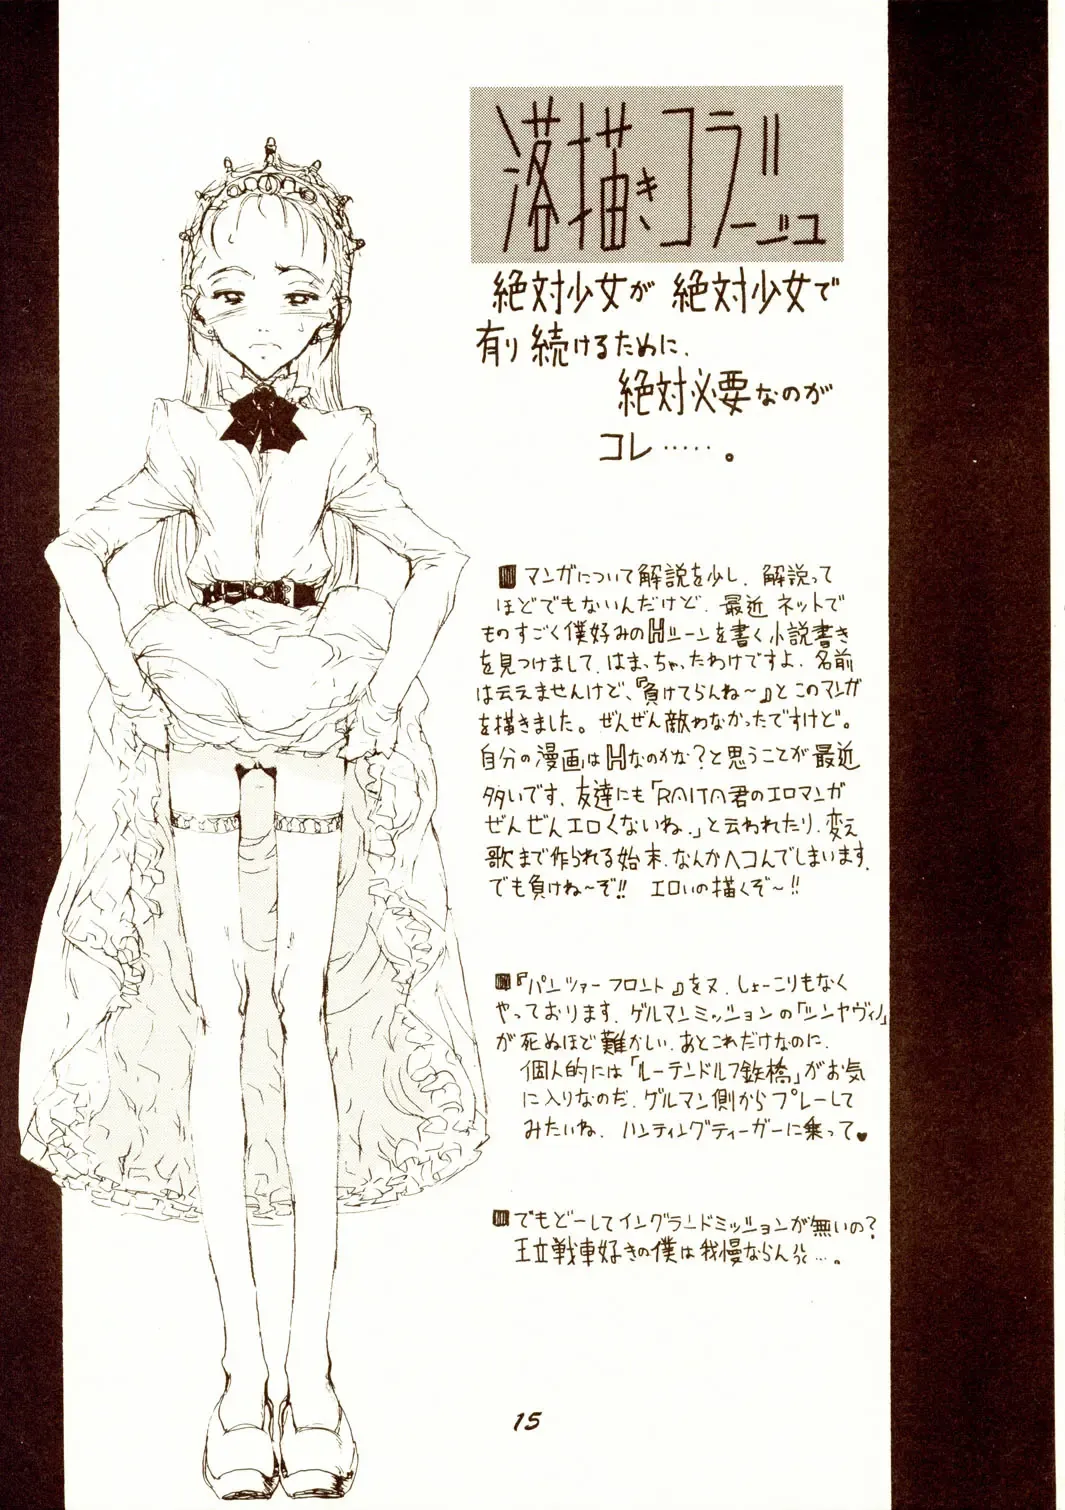 落描きコラージュ
絶対少女が 絶対少女で
有り続けるために、
絶対必要なのが
コレ……。
マンガについて解説を少し、解説って
ほどでもないんだけど、最近ネットで
ものすごく僕好みのHシーンを書く小説書き
を見つけまして、はまっちゃったわけですよ、名前
は云えませんけど、『負けてらんね〜』とこのマンガ
を描きました。ぜんぜん敵わなかったですけど。
自分の漫画はHなのかな?と思うことが最近
多いです、友達にも「RAITA君のエロマンガ
ぜんぜんエロくないね.」と云われたり、変え
歌まで作られる始末、なんかヘコんでしまいます、
でも負けね〜ぞ!! エロいの描くぞ〜!!
『パンツァーフロント』をヌ、しょーこりもなく
やっております、ゲルマンミッションの「シンヤヴィノ」
が死ぬほど難かしい、あとこれだけなのに、
個人的には「ルーデンドルフ鉄橋」がお気
に入りなのだ、ゲルマン側からプレーして
みたいね、ハンティングティーガーに乗って♥
でもどーしてイングランドミッションが無いの?
王立戦車好きの僕は我慢ならん…。
15